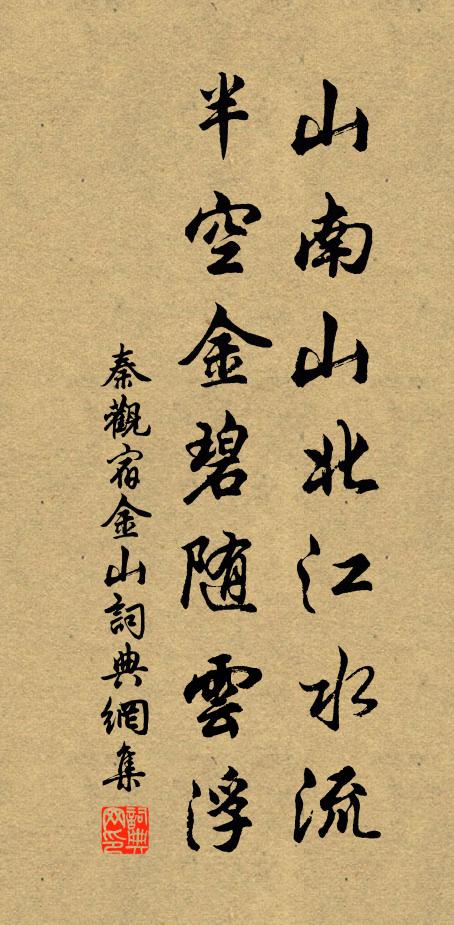 山南山北江水流
半空金碧随雲浮
秦觀宿金山詞典網集
詞典網印